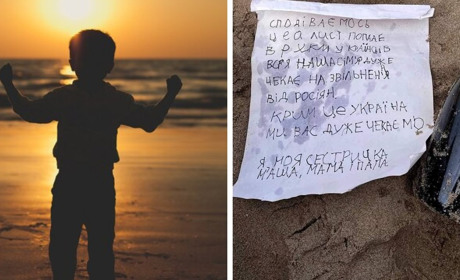 СПОДІВАЄМОСЬ
ЦЕЙ ЛИСТ ПОПАДЕ
В РУКИ УКРАЇНЦІВ
ВСЯ НАША СІМ'Я ДУЖЕ
ЧЕКАЄ НА ЗВІЛЬНЕННЯ
ВІД РОСІЯН
КРИМ ЦЕ УКРАЇНА
МИ ВАС ДУЖЕ ЧЕКАЄМО
Я, МОЯ СЕСТРИЧКА
МАША, МАМА І ПАПА